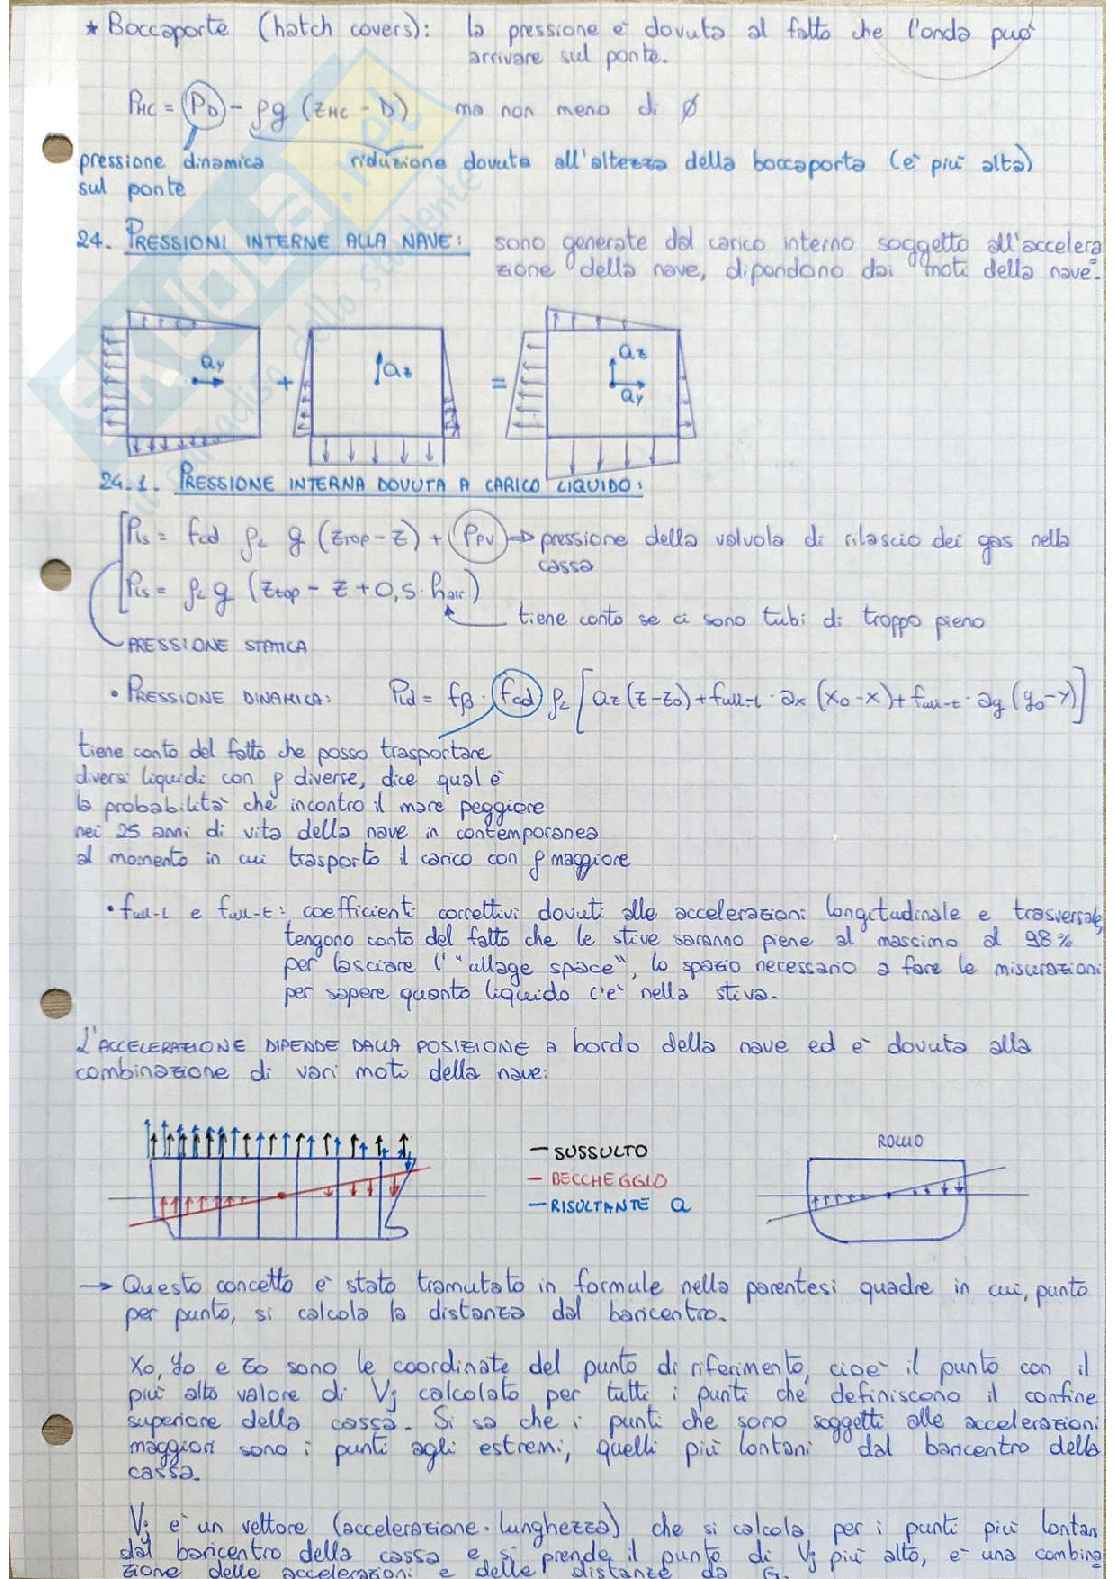 * Boccaporte (hatch covers): la pressione è dovuta al fatto che l'onda può
arrivare sul ponte.
P_HC = P_D - ρg (z_HC - D) ma non meno di ∅
pressione dinamica riduzione dovuta all'altezza della boccaporta (è più alta)
sul ponte
24. PRESSIONI INTERNE ALLA NAVE: sono generate dal carico interno soggetto all'accelera
zione della nave, dipendono dai moti della nave.
a_y + a_z = a_z
a_y
24.1. PRESSIONE INTERNA DOVUTA A CARICO LIQUIDO:
P_ls = f_cd ρ_L g (z_TOP - z) + P_PV → pressione della valvola di rilascio dei gas nella
cassa
P_ls = ρ_L g (z_top - z + 0,5 · h_air)
tiene conto se ci sono tubi di troppo pieno
PRESSIONE STATICA
• PRESSIONE DINAMICA: P_ld = f_β · f_cd ρ_L [a_z (z-z_0) + f_ull-l · a_x (x_0-x) + f_ull-t · a_y (y_0-y)]
tiene conto del fatto che posso trasportare
diversi liquidi con ρ diverse, dice qual è
la probabilità che incontro il mare peggiore
nei 25 anni di vita della nave in contemporanea
al momento in cui trasporto il carico con ρ maggiore
• f_ull-l e f_ull-t: coefficienti correttivi dovuti alle accelerazioni longitudinale e trasversale,
tengono conto del fatto che le stive saranno piene al massimo al 98%
per lasciare l'"ullage space", lo spazio necessario a fare le misurazioni
per sapere quanto liquido c'è nella stiva.
L'ACCELERAZIONE DIPENDE DALLA POSIZIONE a bordo della nave ed è dovuta alla
combinazione di vari moti della nave:
— SUSSULTO
— BECCHEGGIO
— RISULTANTE a
ROLLIO
→ Questo concetto è stato tramutato in formule nella parentesi quadre in cui, punto
per punto, si calcola la distanza dal baricentro.
X_0, Y_0 e Z_0 sono le coordinate del punto di riferimento, cioè il punto con il
più alto valore di V_j calcolato per tutti i punti che definiscono il confine
superiore della cassa. Si sa che i punti che sono soggetti alle accelerazioni
maggiori sono i punti agli estremi, quelli più lontani dal baricentro della
cassa.
V_j è un vettore (accelerazione · lunghezza) che si calcola per i punti più lontan
dal baricentro della cassa e si prende il punto di V_j più alto, è una combina
zione delle accelerazioni e delle distanze da G.